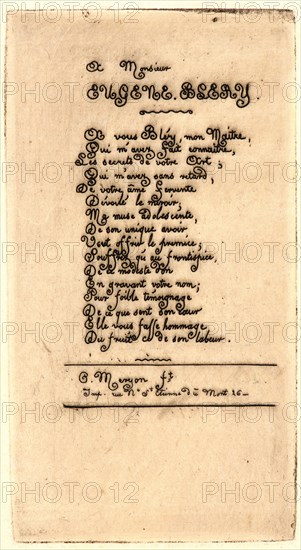 A Monsieur
EUGENE. BLERY.
A vous Bléry mon Maître,
Qui m'avez fait connaître,
Les secrets de votre Art;
Qui m'avez sans retard,
De votre, âme fervente
Dévoilé le miroir;
Ma muse adolescente,
De son unique avoir,
Vent offrir le premice;
Souffrez qu'au frontispice,
De ce modeste don
En gravant votre nom;
Pour foible témoignage
De ce que sent son cœur
Elle vous fasse hommage
Du fruit de son labeur.
C. Meryon ft
Imp. rue Ne St Etienne du Mont 26
PHOTO12